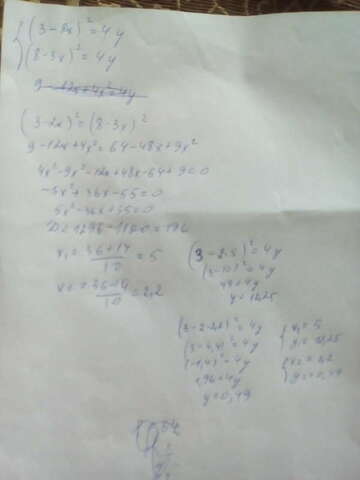 {(3-2x)²=4y
(8-3x)²=4y
9-12x+4x²=4y
(3-2x)²=(8-3x)²
9-12x+4x²=64-48x+9x²
4x²-9x²-12x+48x-64+9=0
-5x²+36x-55=0
5x²-36x+55=0
D=1296-1100=196
x₁=36+14/10=5
x₂=36-14/10=2,2
(3-2·5)²=4y
(3-10)²=4y
49=4y
y=12,25
(3-2·2,2)²=4y
(3-4,4)²=4y
(-1,4)²=4y
1,96=4y
y=0,49
{x₁=5
y₁=12,25
{x₂=2,2
y₂=0,49